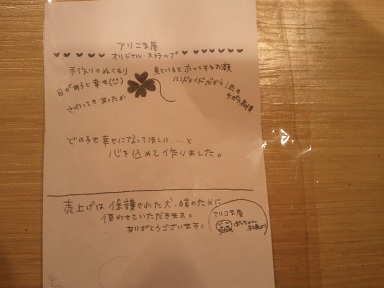 アリコ玉屋
オリジナルストラップ
手作りのぬくもり
目があうと幸せ
さわってもあったか
見ているとホッとするお顔
ハンドメイドだから1点々
どの子も幸せになってほしい……と
心を込めて作りました。
売上げは保護された犬、猫のために
使わせていただきます。
ありがとうございます。
アリコ玉屋